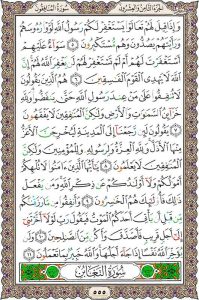 الجزء الثامن والعشرون سورة المنافقون
وَإِذَا قِيلَ لَهُمْ تَعَالَوْا۟ يَسْتَغْفِرْ لَكُمْ رَسُولُ ٱللَّهِ لَوَّوْا۟ رُءُوسَهُمْ
وَرَأَيْتَهُمْ يَصُدُّونَ وَهُم مُّسْتَكْبِرُونَ ٥ سَوَآءٌ عَلَيْهِمْ
أَسْتَغْفَرْتَ لَهُمْ أَمْ لَمْ تَسْتَغْفِرْ لَهُمْ لَن يَغْفِرَ ٱللَّهُ لَهُمْ إِنَّ
ٱللَّهَ لَا يَهْدِى ٱلْقَوْمَ ٱلْفَـٰسِقِينَ ٦ هُمُ ٱلَّذِينَ يَقُولُونَ
لَا تُنفِقُوا۟ عَلَىٰ مَنْ عِندَ رَسُولِ ٱللَّهِ حَتَّىٰ يَنفَضُّوا۟ وَلِلَّهِ
خَزَآئِنُ ٱلسَّمَـٰوَٰتِ وَٱلْأَرْضِ وَلَـٰكِنَّ ٱلْمُنَـٰفِقِينَ لَا يَفْقَهُونَ
٧ يَقُولُونَ لَئِن رَّجَعْنَآ إِلَى ٱلْمَدِينَةِ لَيُخْرِجَنَّ ٱلْأَعَزُّ
مِنْهَا ٱلْأَذَلَّ وَلِلَّهِ ٱلْعِزَّةُ وَلِرَسُولِهِۦ وَلِلْمُؤْمِنِينَ وَلَـٰكِنَّ
ٱلْمُنَـٰفِقِينَ لَا يَعْلَمُونَ ٨ يَـٰٓأَيُّهَا ٱلَّذِينَ ءَامَنُوا۟ لَا تُلْهِكُمْ
أَمْوَٰلُكُمْ وَلَآ أَوْلَـٰدُكُمْ عَن ذِكْرِ ٱللَّهِ وَمَن يَفْعَلْ
ذَٰلِكَ فَأُو۟لَـٰٓئِكَ هُمُ ٱلْخَـٰسِرُونَ ٩ وَأَنفِقُوا۟ مِن مَّا رَزَقْنَـٰكُم
مِّن قَبْلِ أَن يَأْتِىَ أَحَدَكُمُ ٱلْمَوْتُ فَيَقُولَ رَبِّ لَوْلَآ أَخَّرْتَنِىٓ
إِلَىٰٓ أَجَلٍ قَرِيبٍ فَأَصَّدَّقَ وَأَكُن مِّنَ ٱلصَّـٰلِحِينَ ١٠ وَلَن
يُؤَخِّرَ ٱللَّهُ نَفْسًا إِذَا جَآءَ أَجَلُهَا وَٱللَّهُ خَبِيرٌۢ بِمَا تَعْمَلُونَ ١١
سورة التغابن
٥٥٥